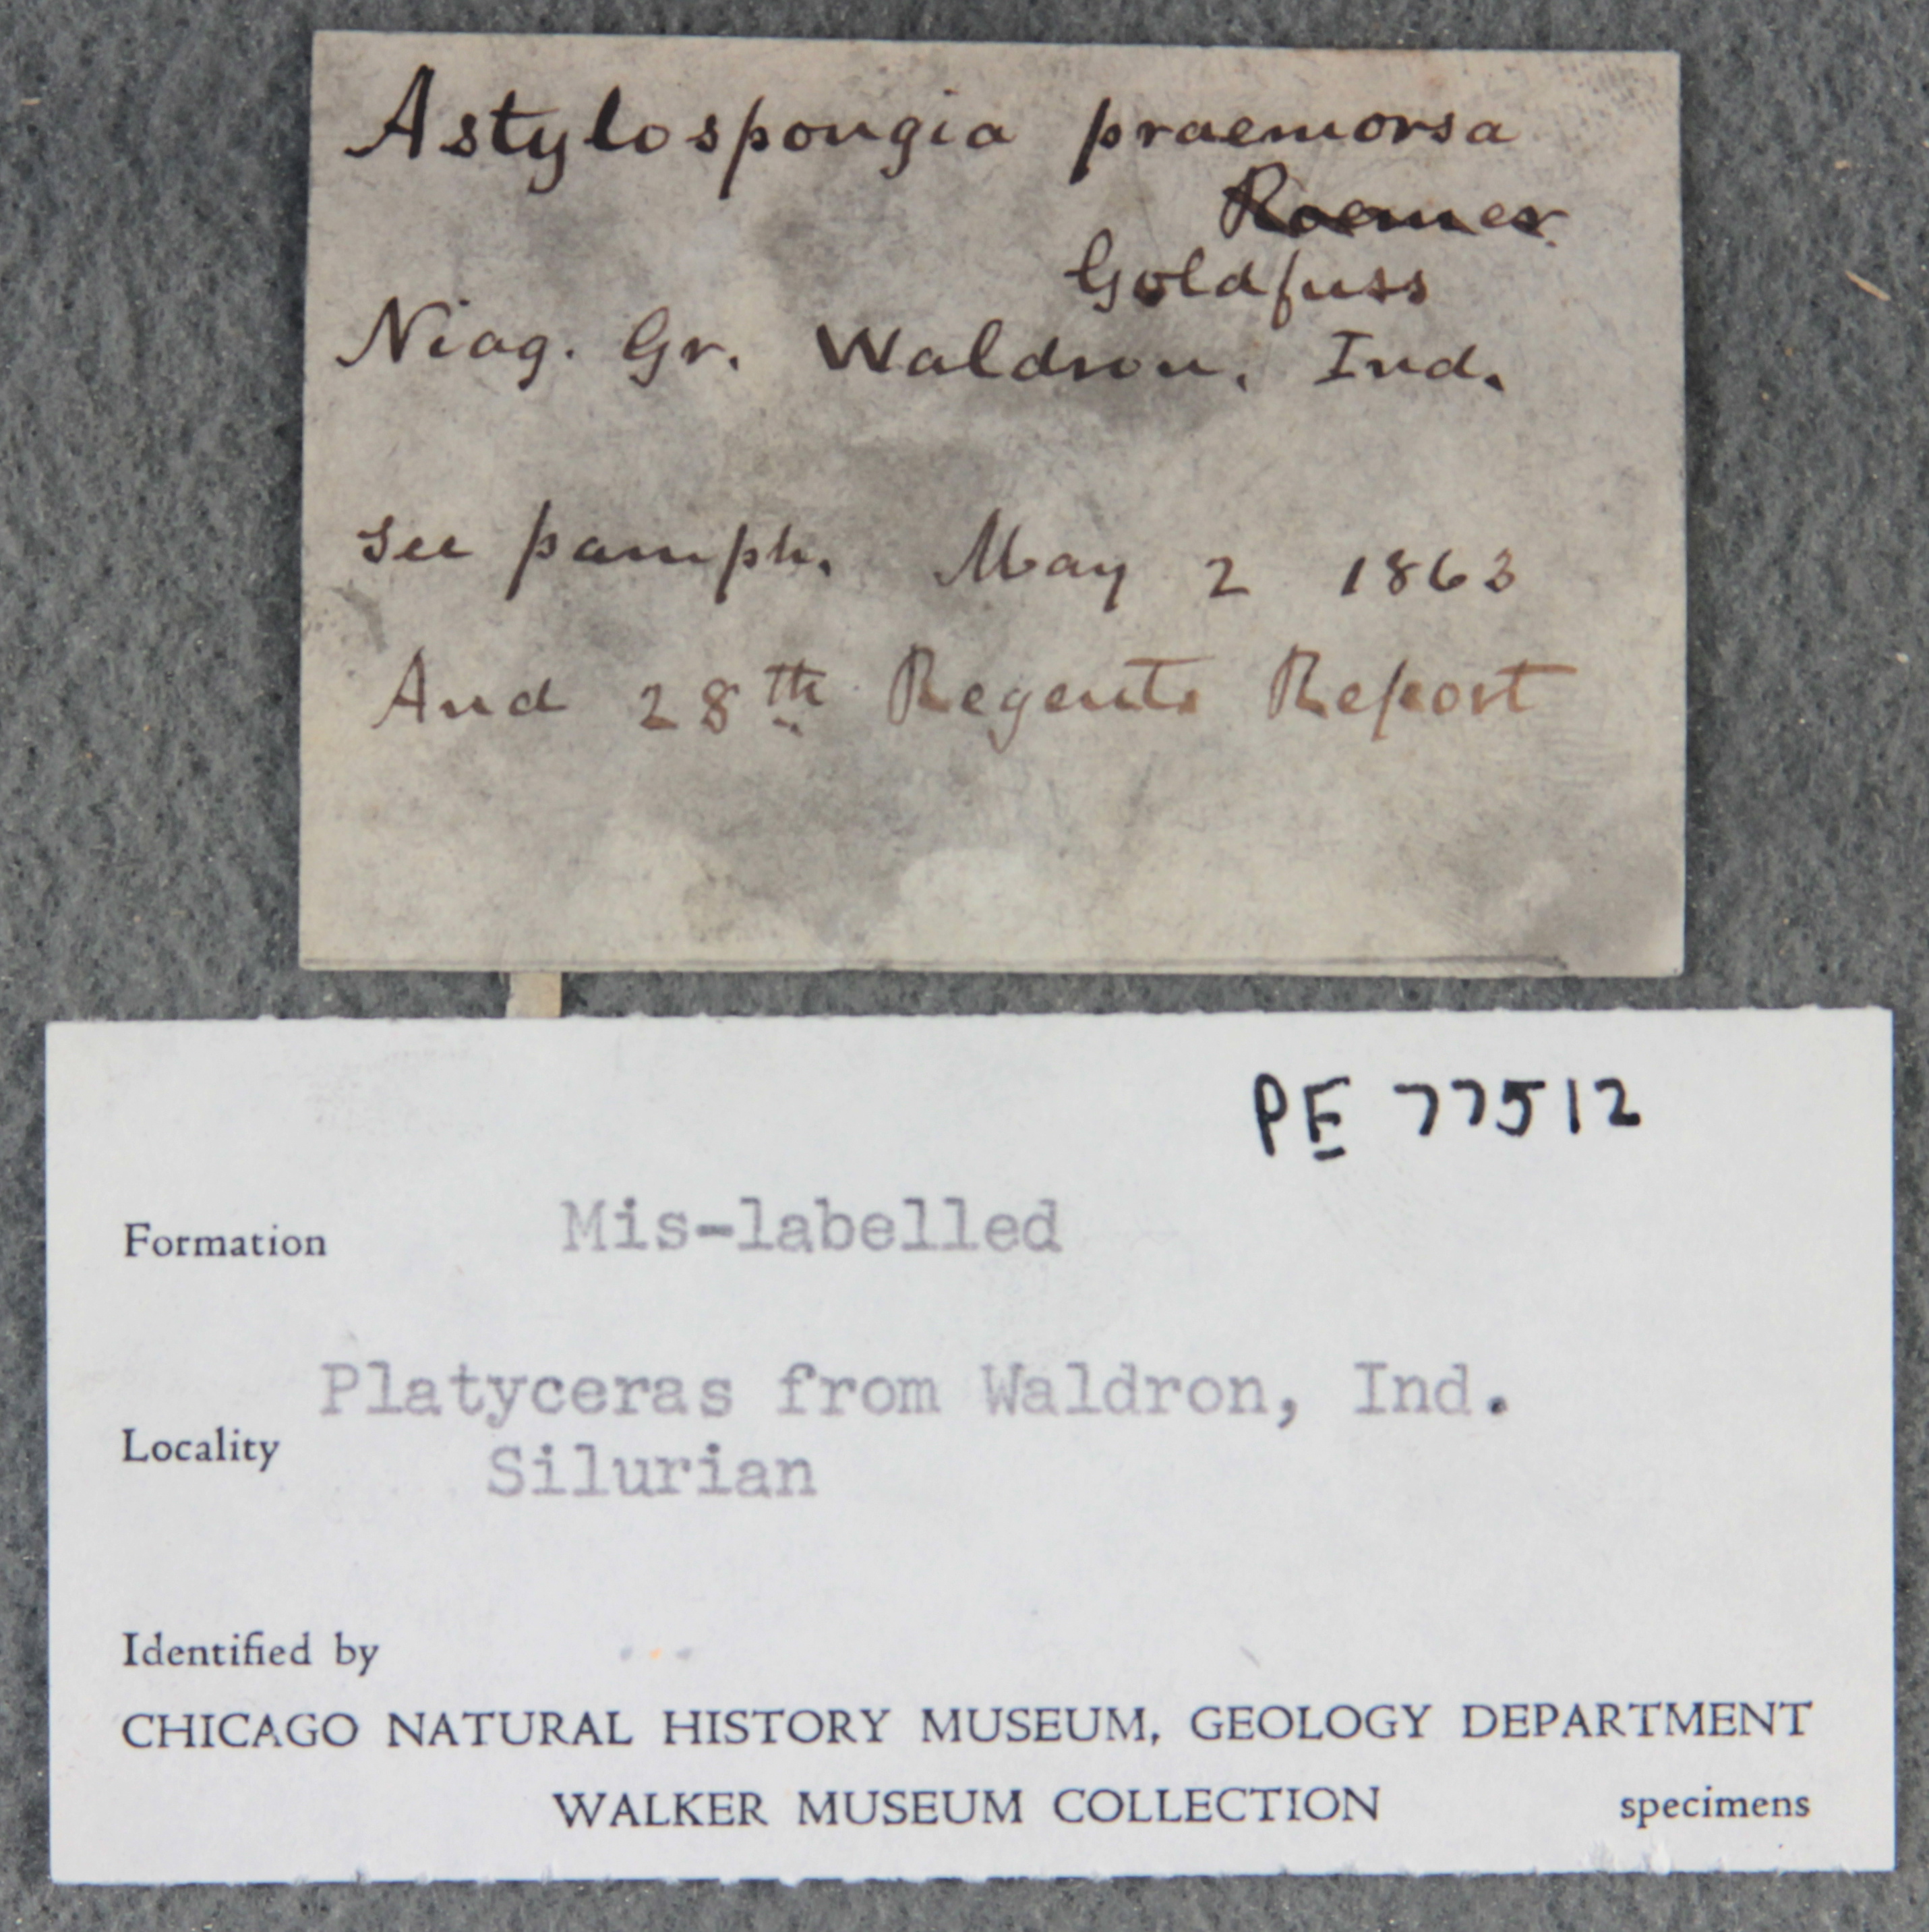 Astylospongia praemorsa
Roemer
Goldfuss
Niag. Gr. Waldron, Ind.
see pamph. May 2 1863
And 28th Regents Report
PE 77512
Formation Mis-labelled
Platyceras from Waldron, Ind.
Locality Silurian
Identified by
CHICAGO NATURAL HISTORY MUSEUM, GEOLOGY DEPARTMENT
WALKER MUSEUM COLLECTION specimens